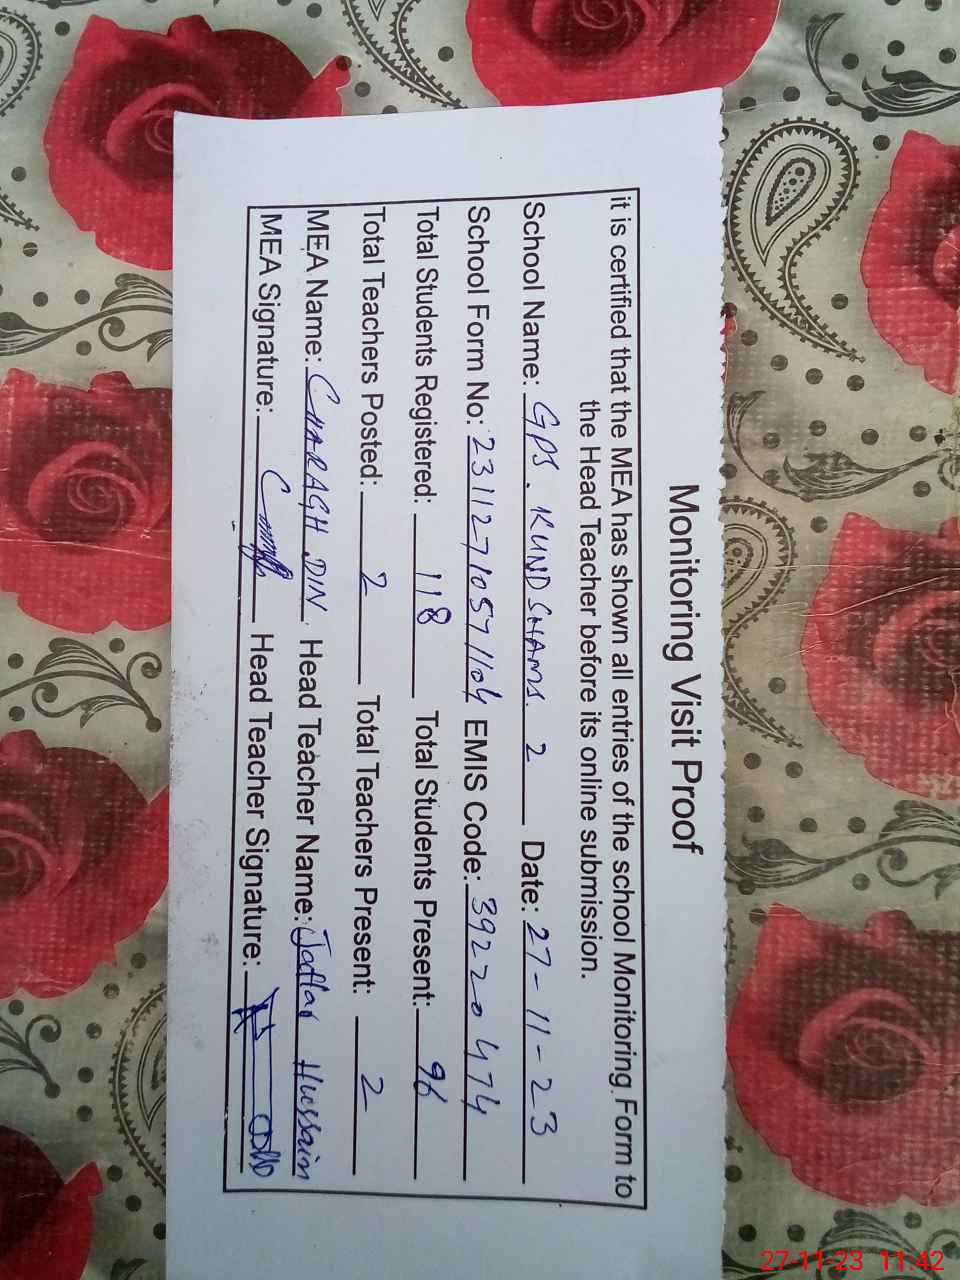 Monitoring Visit Proof
it is certified that the MEA has shown all entries of the school Monitoring Form to
the Head Teacher before its online submission.
School Name: GPS. KUND SHAMS. 2 Date: 27-11-23
School Form No: 23112710571104 EMIS Code: 39220474
Total Students Registered: 118 Total Students Present: 96
Total Teachers Posted: 2 Total Teachers Present: 2
MEA Name: CHARAGH DIN Head Teacher Name: Jaffar Hussain
MEA Signature: Head Teacher Signature:
27-11-23 11:42